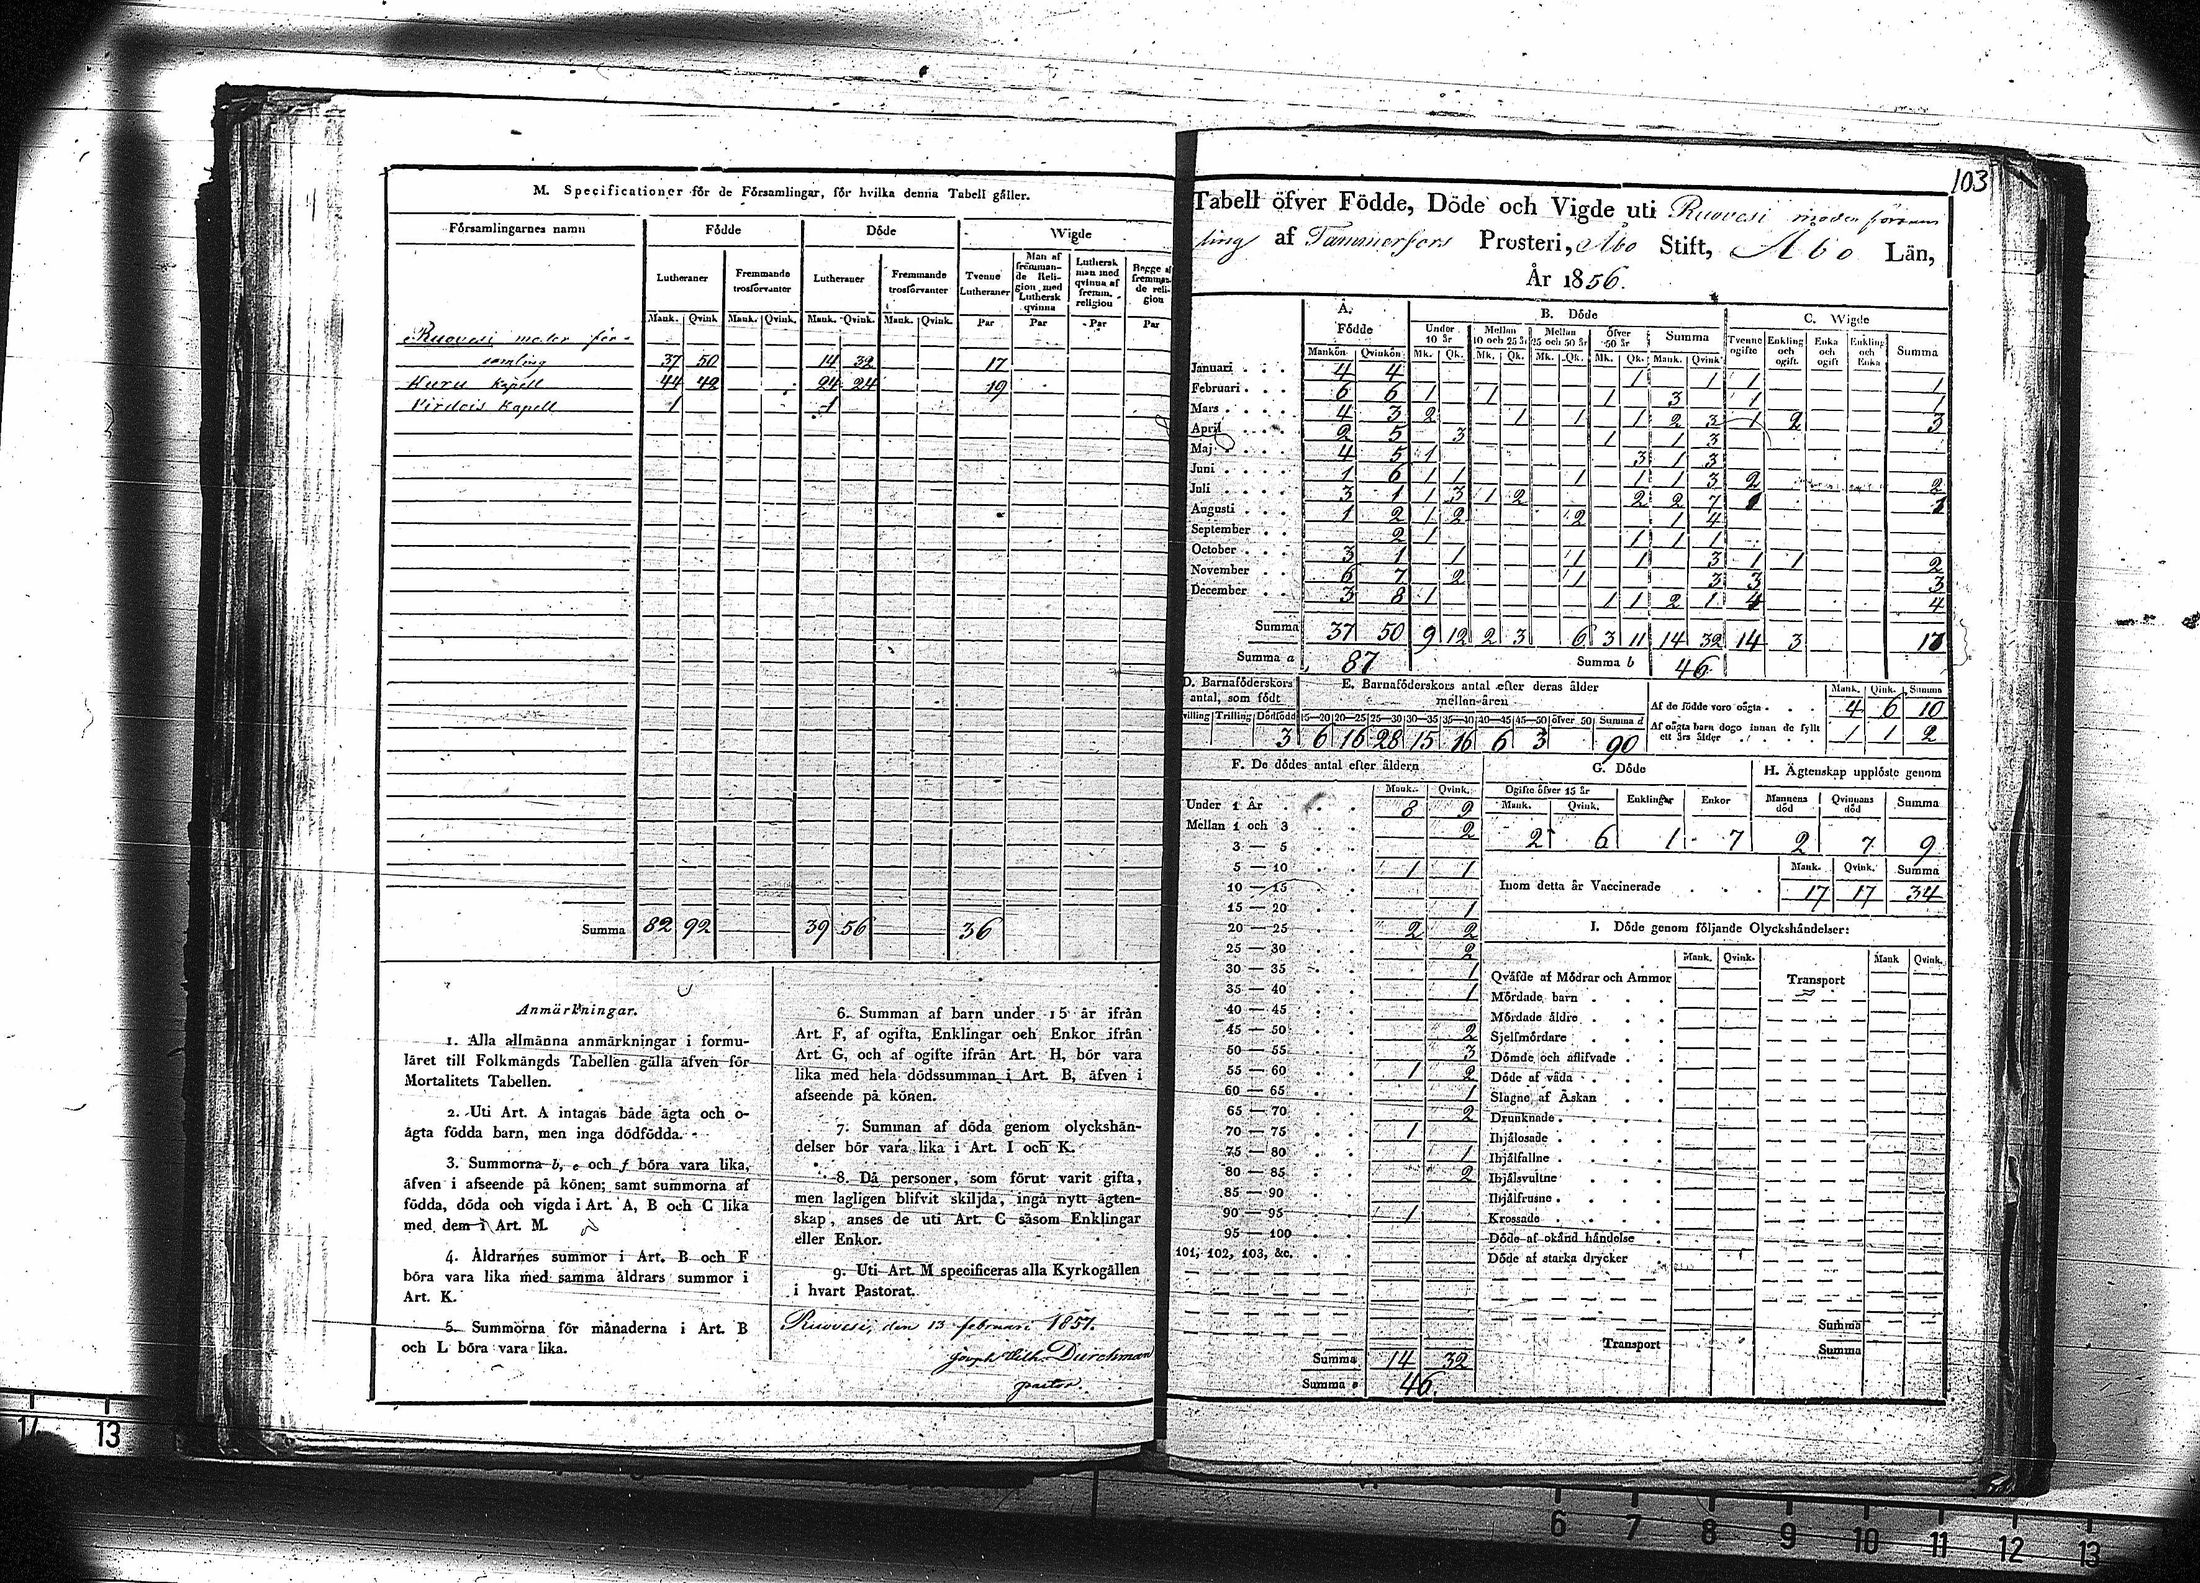 M. Specificationer för de Församlingar, för hvilka denna Tabell gäller.
Församlingarnes namn Födde Döde Wigde
Lutheraner Fremmande trosförvanter Lutheraner Fremmande trosförvanter Tvenne Lutheraner Man af fremmande Religion med Luthersk qvinna Luthersk man med qvinna af fremm. religion Begge af fremmande religion
Mank. Qvink Mank. Qvink. Mank. Qvink. Mank. Qvink. Par Par Par Par
Ruovesi moder för-
samling 37 50 14 32 17
Kuru Kapell 44 42 24 24 19
Virdois Kapell 1 1
Summa 82 92 39 56 36
Anmärkningar.
1. Alla allmänna anmärkningar i formu-
läret till Folkmängds Tabellen gälla äfven för
Mortalitets Tabellen.
2. Uti Art. A intagas både ägta och o-
ägta födda barn, men inga dödfödda.
3. Summorna b, e och f böra vara lika,
äfven i afseende på könen; samt summorna af
födda, döda och vigda i Art. A, B och C lika
med dem i Art. M.
4. Åldrarnes summor i Art. B och F
böra vara lika med samma åldrars summor i
Art. K.
5. Summorna för månaderna i Art. B
och L böra vara lika.
6. Summan af barn under 15 år ifrån
Art. F, af ogifta, Enklingar och Enkor ifrån
Art. G, och af ogifte ifrån Art. H, bör vara
lika med hela dödssumman i Art. B, äfven i
afseende på könen.
7. Summan af döda genom olyckshän-
delser bör vara lika i Art. I och K.
8. Då personer, som förut varit gifta,
men lagligen blifvit skiljda, ingå nytt ägten-
skap, anses de uti Art. C såsom Enklingar
eller Enkor.
9. Uti Art. M specificeras alla Kyrkogällen
i hvart Pastorat.
Ruovesi, den 13 februari 1857.
Joseph Wilh. Durchman
pastor.
103
Tabell öfver Födde, Döde och Vigde uti Ruovesi moder försam
ling af Tammerfors Prosteri, Åbo Stift, Åbo Län,
År 1856.
A. Födde B. Döde C. Wigde
Under 10 år Mellan 10 och 25 år Mellan 25 och 50 år öfver 50 år Summa Tvenne ogifte Enkling och ogift. Enka och ogift Enkling och Enka Summa
Mankön Qvinkön Mk. Qk. Mk. Qk. Mk. Qk. Mk. Qk. Mank. Qvink
Januari 4 4 1 1 1 1
Februari 6 6 1 1 1 3 1 1
Mars 4 3 2 1 1 1 2 3 1 2 3
April 2 5 3 1 1 3
Maj 4 5 1 3 1 3
Juni 1 6 1 1 1 1 1 3 2 2
Juli 3 1 1 3 1 2 2 2 7 1 1
Augusti 1 2 1 2 2 1 4
September 2 1 1 1 1
October 3 1 1 1 1 3 1 1 2
November 6 7 2 1 3 3 3
December 3 8 1 1 1 2 1 4 4
Summa 37 50 9 12 2 3 6 3 11 14 32 14 3 17
Summa a 87 Summa b 46
D. Barnaföderskors antal, som födt
Trilling Dödfödd
3
E. Barnaföderskors antal efter deras ålder mellan åren
15—20 20—25 25—30 30—35 35—40 40—45 45—50 öfver 50 Summa d
6 16 28 15 16 6 3 90
Mank. Qink. Summa
Af de födde voro oägta 4 6 10
Af oägta barn dogo innan de fyllt ett års ålder 1 1 2
F. De dödes antal efter åldern
Mank. Qvink.
Under 1 År 8 9
Mellan 1 och 3 2
3 — 5
5 — 10 1 1
10 — 15
15 — 20 1
20 — 25 2 2
25 — 30 2
30 — 35 1
35 — 40 1
40 — 45
45 — 50 2
50 — 55 3
55 — 60 1 2
60 — 65 1
65 — 70 2
70 — 75 1
75 — 80 1
80 — 85 2
85 — 90
90 — 95 1
95 — 100
101, 102, 103, &c.
Summa 14 32
Summa e 46
G. Döde
Ogifte öfver 15 år Enklingar Enkor
Mank. Qvink.
2 6 1 7
H. Ägtenskap upplöste genom
Mannens död Qvinnans död Summa
2 7 9
Mank. Qvink. Summa
Inom detta år Vaccinerade 17 17 34
I. Döde genom följande Olyckshändelser:
Mank. Qvink. Mank Qvink.
Qväfde af Mödrar och Ammor Transport
Mördade barn
Mördade äldre
Sjelfmördare
Dömde och aflifvade
Döde af våda
Slagne af Åskan
Drunknade
Ihjälosade
Ihjälfallne
Ihjälsvultne
Ihjälfrusne
Krossade
Döde af okänd händelse
Döde af starka drycker
Summa
Transport Summa
14 13
6 7 8 9 10 11 12 13